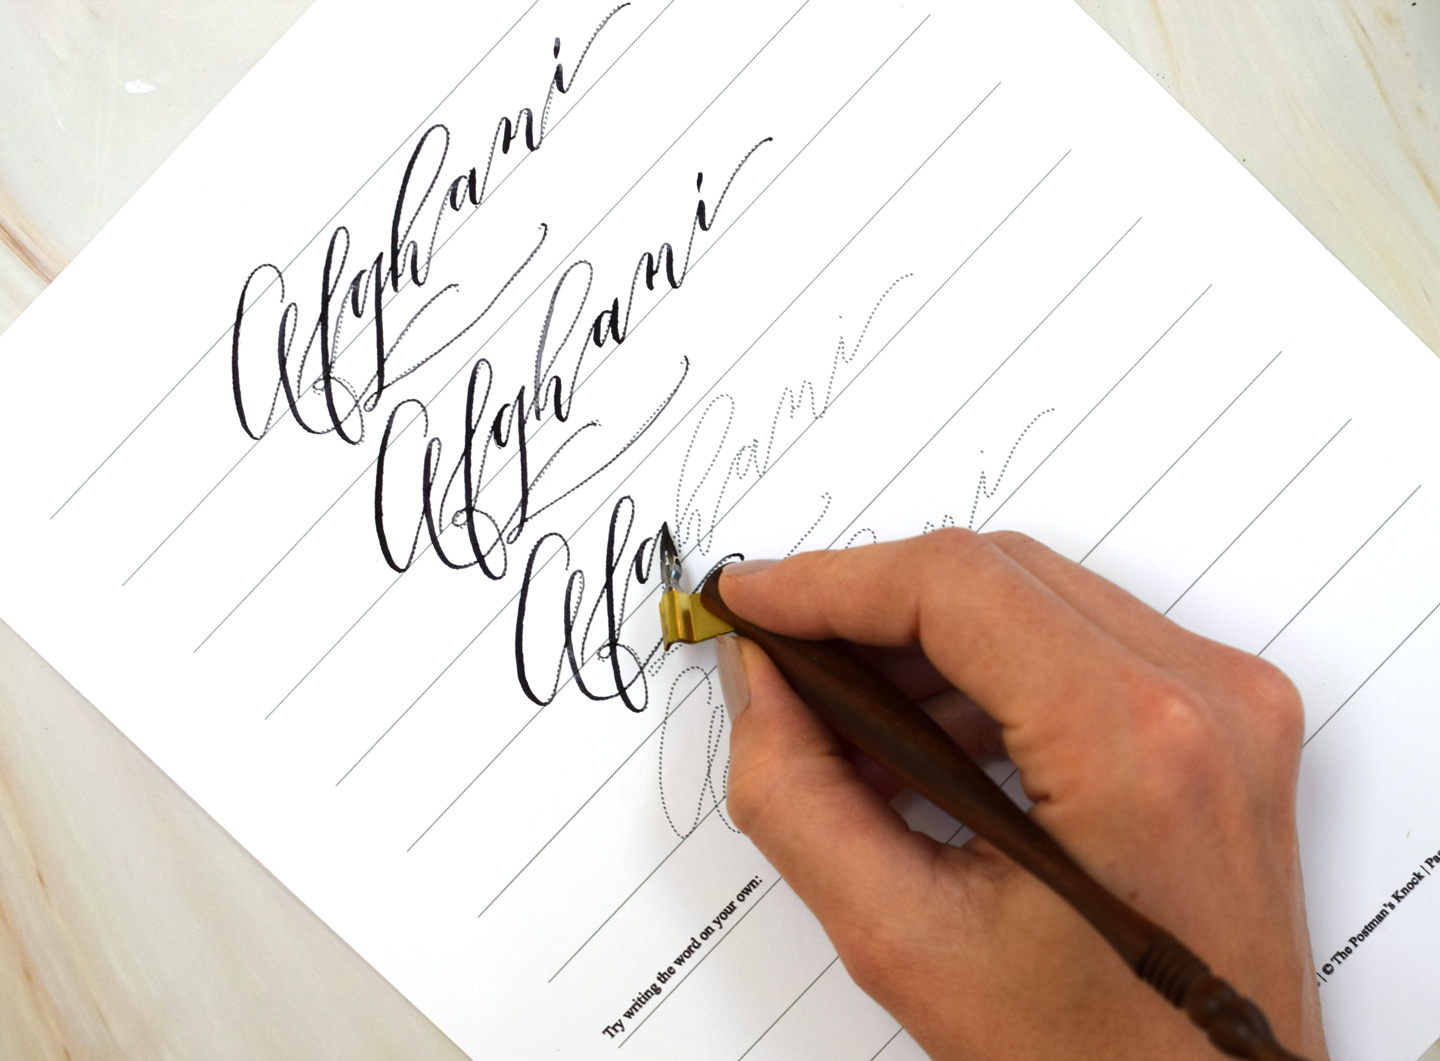 Afghani
Afghani
Afghani
Try writing the word on your own:
| © The Postman's Knock |